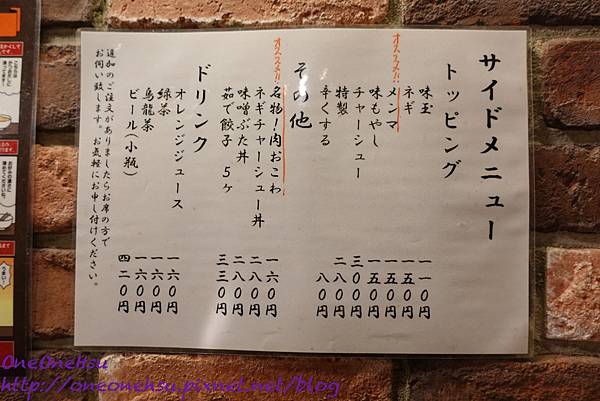 サイドメニュー
トッピング
味玉 一一〇円
ネギ 一五〇円
オススメ!! メンマ 一五〇円
味もやし 一五〇円
チャーシュー 三〇〇円
特製 二八〇円
辛くする 八〇円
その他
オススメ!! 名物!肉おこわ 一六〇円
ネギチャーシュー丼 二八〇円
味噌ぶた丼 二八〇円
茹で餃子 5ヶ 三三〇円
ドリンク
オレンジジュース 一六〇円
緑茶 一六〇円
烏龍茶 一六〇円
ビール(小瓶) 四二〇円
追加のご注文がありましたらお席の方で
お伺い致します。お気軽にお申し付けください。
OneOneHsu
http://oneonehsu.pixnet.net/blog